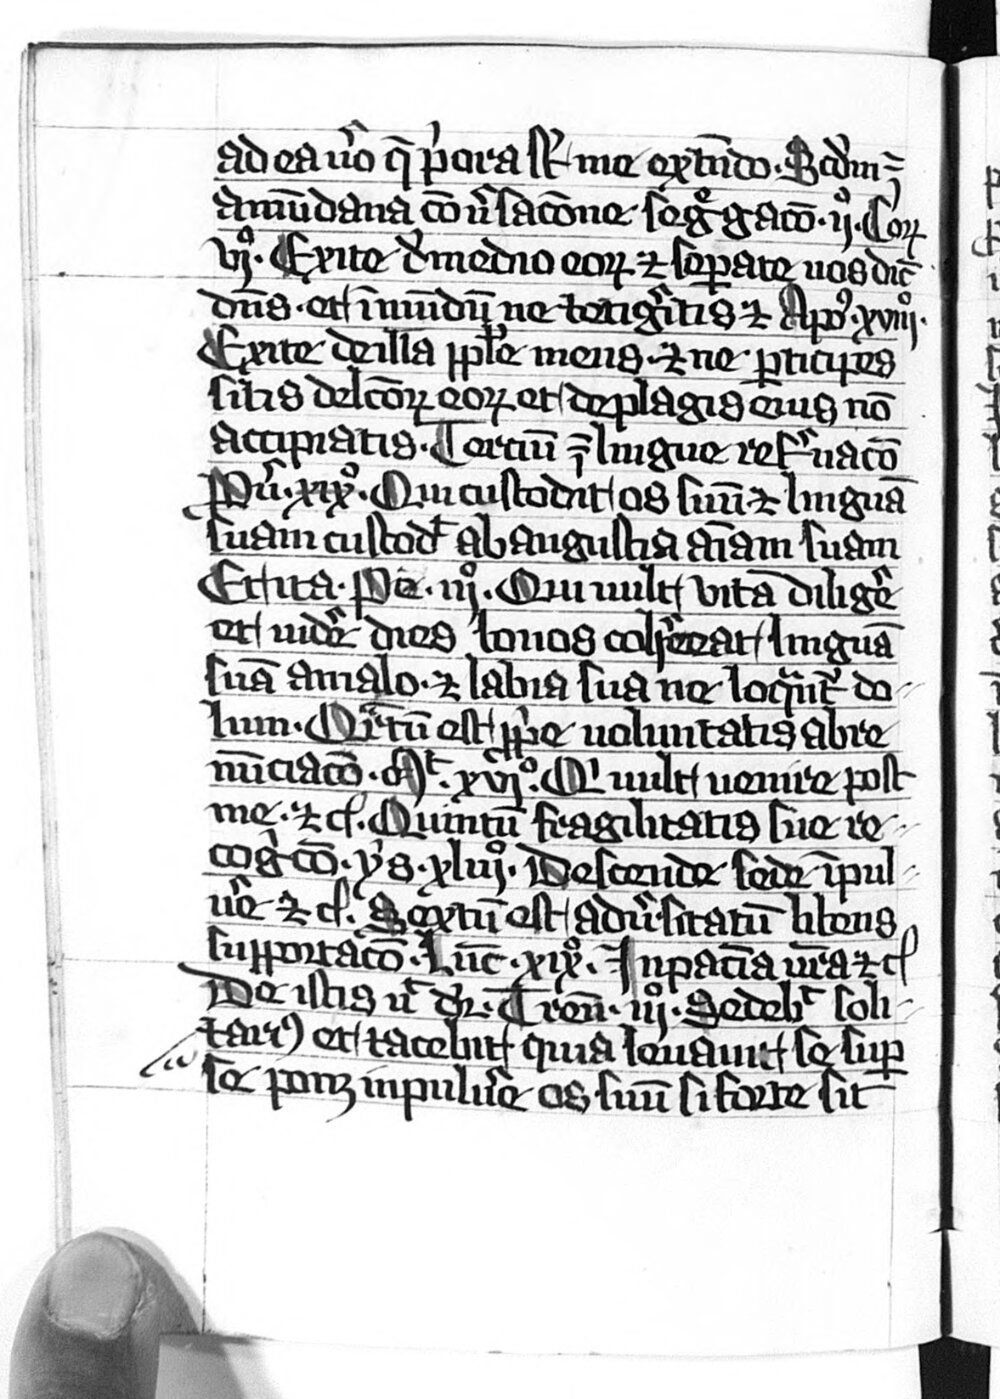 ad ea ūo q̄ pͥora sͭ me extn̄do. Scdm ē
a mūdana cōūsacōne seg̊gacō. ij. Coꝝ
vjͦ. Exite de medio eoꝝ ⁊ sepate uos dic̄
dn̄s. et īmūdū ne tetigitis ⁊ Apoͦ. xviijͦ.
Exite de illa pple meus. ⁊ ne pticipes
sitis delcōꝝ eoꝝ et de plagis eius nō
accipiatis. Terciū ē lingue resͬuacō
Pū. xixͦ. Qui custodit os suū ⁊ linguā
suam custodͭ ab angustia aīam suam
Et ita. Pe. iijͦ. Qui uult vitā diligē
et uidē dies bonos cohceat linguā
suā a malo. ⁊ labia sua ne loquātͬ do
lum. Qͣrtū est ppe uoluntatis abre
nūciacō. Mͭ. xvjͦ. Qͥ uult uenire post
me. ⁊ cͭ. Quintū fragilitatis sue re
cogͥcō. ys. xluijͦ. Descende sede ī pul
ūe ⁊ cͭ. Sextū est adūsitatū libens
supportacō. Luc̄. xixͦ. In pacīa ūra ⁊ cͭ
De istis uͭ dͬ. Tren̄. iijͦ. Sedebͭ soli
tariꝰ et tacebit quia leuauit se sup
se ponꝫ in puluē os suū si forte sit